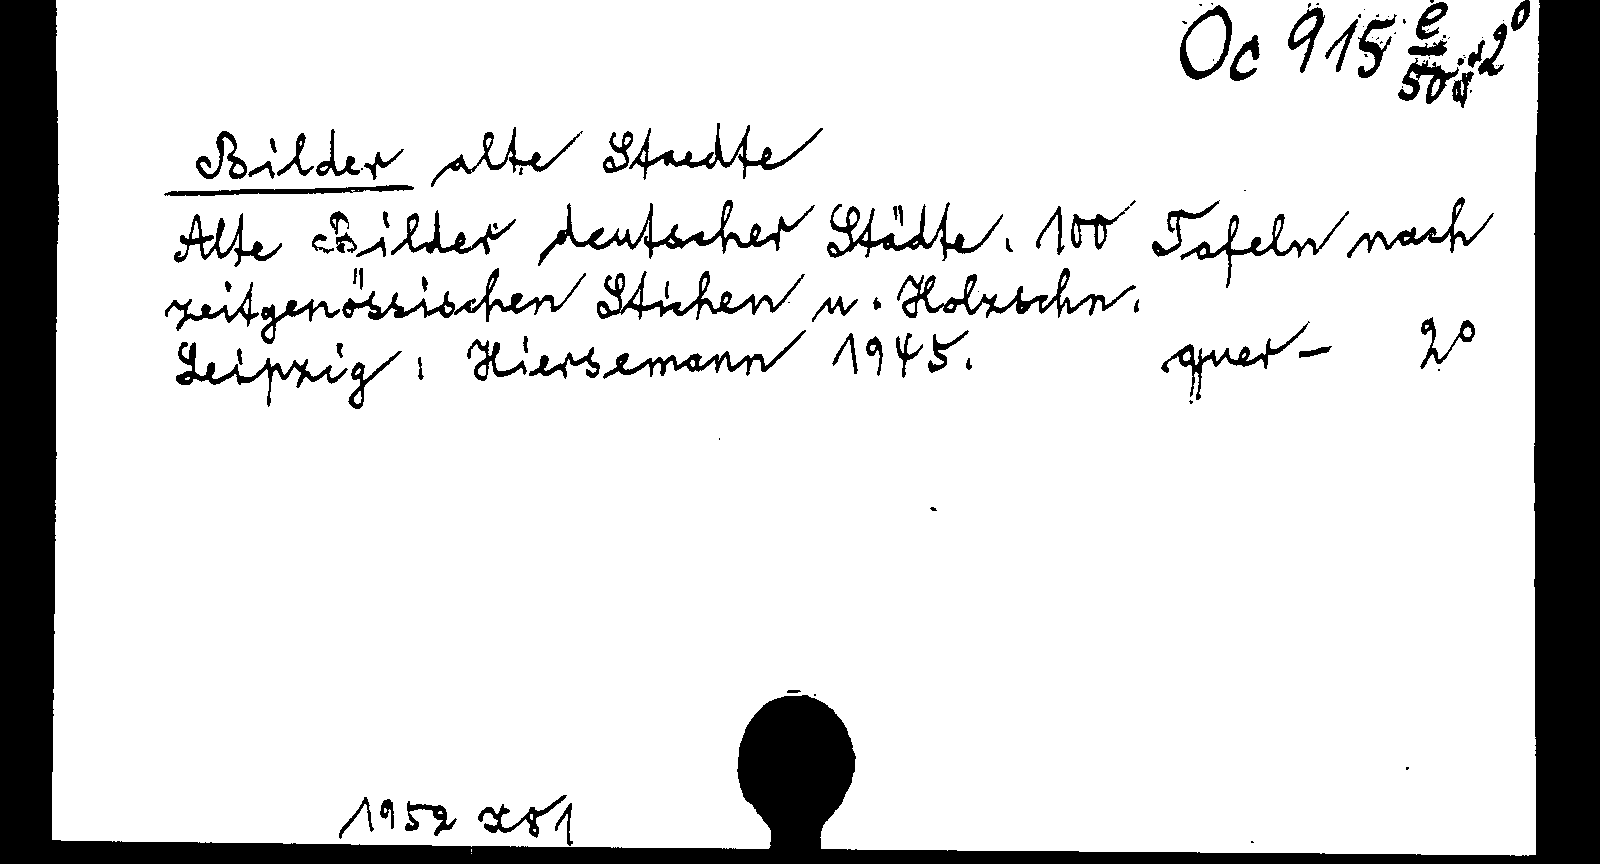 Oc 915 e/50 2°
Bilder alte Staedte
Alte Bilder deutscher Städte. 100 Tafeln nach
zeitgenössischen Stichen u. Holzschn.
Leipzig: Hiersemann 1945. quer- 2°
1952 x 81